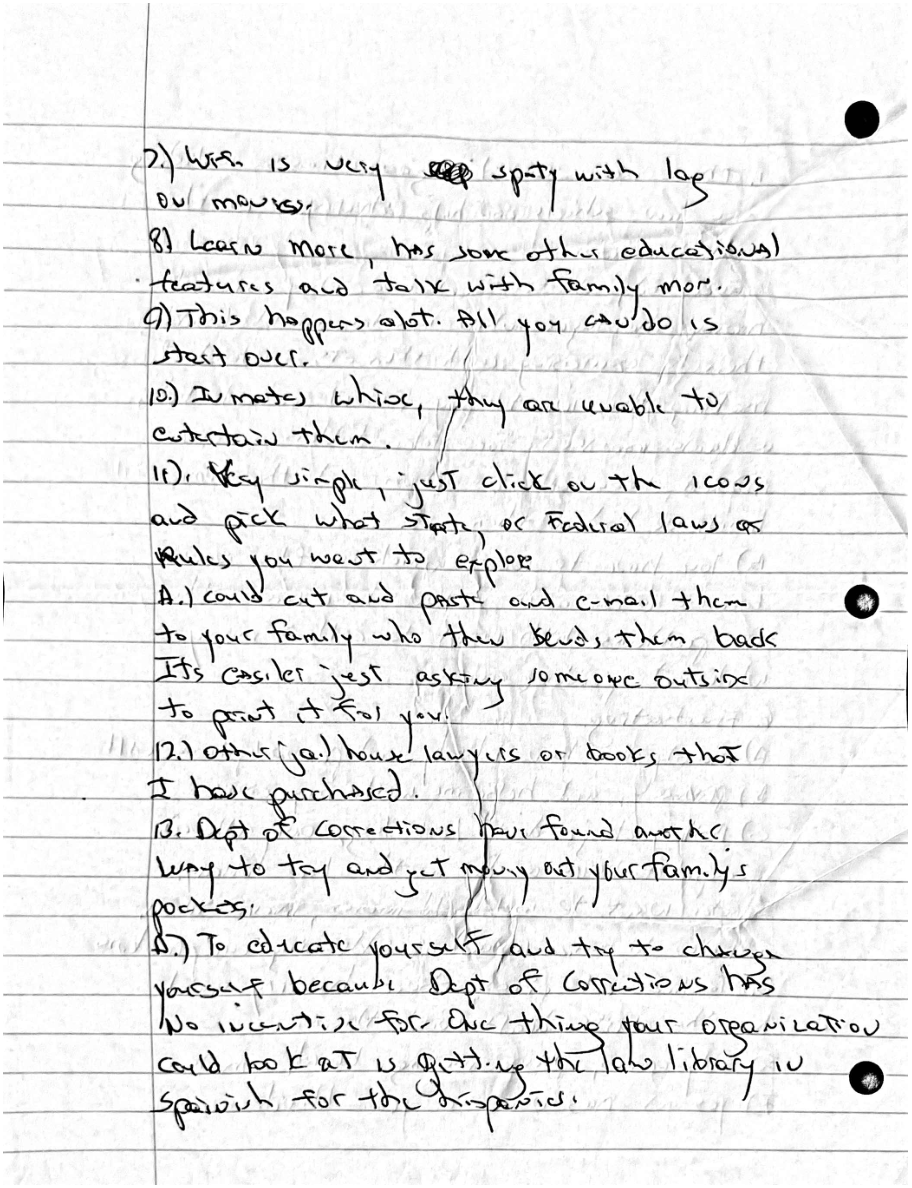 7.) Wifi is very spoty with lag
ou movies.
8) Learn more, has some other educational
features and talk with family mor.
9) This happens alot. All you can do is
start over.
10.) Inmates whine, they are unable to
entertain them.
11). Very simple, just click on the icons
and pick what state, or Federal laws or
Rules you want to explore
A.) could cut and paste and e-mail them
to your family who then sends them back
Its easiler just asking someone outside
to print it for you.
12.) other jail house lawyers or books that
I have purchased.
13. Dept of Corrections have found another
way to try and get money out your family's
pockets.
To educate yourself and try to change
yourself because Dept of Corrections has
No incentive for. One thing your organization
could look at is getting the law library in
spanish for the hispanics.